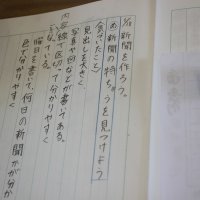 1/12 新聞を作ろう。
め 新聞の特ちょうを見つけよう
〈気づいたこと〉
見出しを大きく
写真や何などが書いてある。
内容を線で区切って分かりやすく
している。
曜日を書いて、何日の新聞かが分か
色で分かりやすく